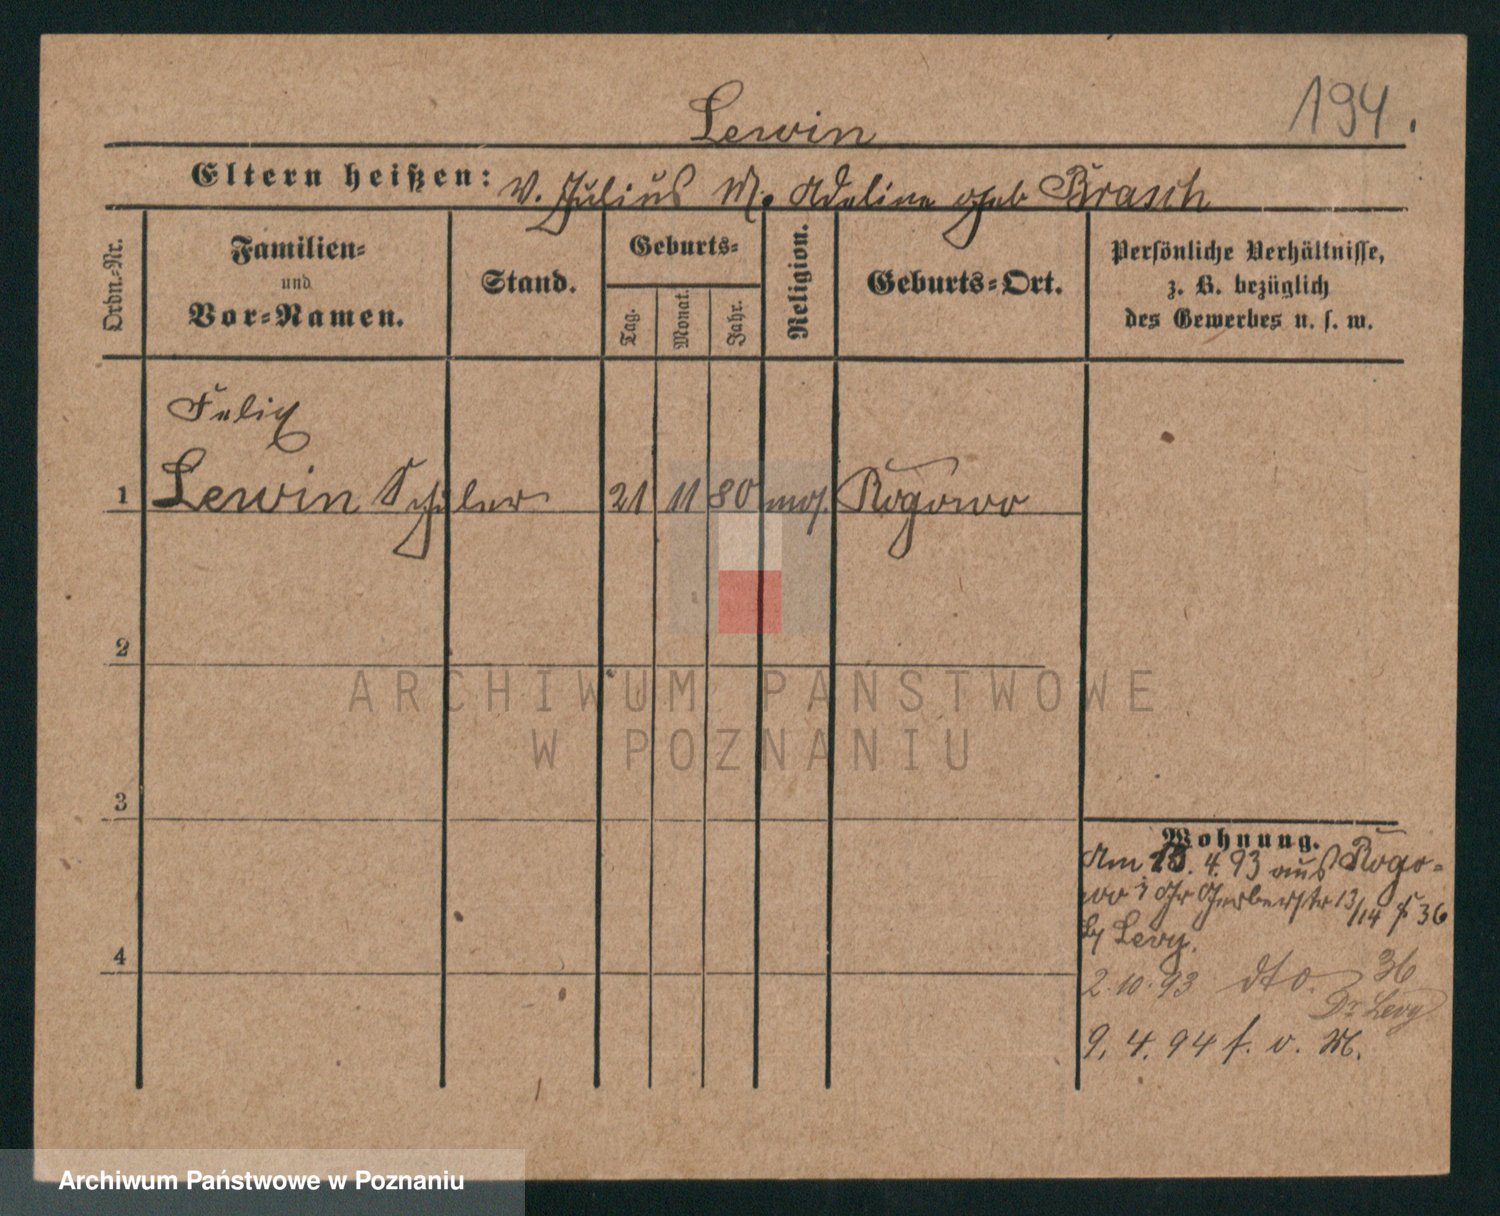 194.
Lewin
Eltern heißen: V. Julius M. Adeline geb Brasch
Ordn.-Nr.
Familien-
und
Vor-Namen.
Stand.
Geburts-
Tag.
Monat.
Jahr.
Religion.
Geburts-Ort.
Persönliche Verhältnisse,
z. B. bezüglich
des Gewerbes u. s. w.
Felix
1 Lewin Schüler 21 11 80 mos. Rogowo
2
ARCHIWUM PAŃSTWOWE
W POZNANIU
3
Wohnung.
Am 13. 4. 93 aus Rogo-
wo Gr Gerberstr 13/14 36
Levy.
4
2. 10. 93 dto. 36
Dr Levy
9. 4. 94 f. v. M.
Archiwum Państwowe w Poznaniu